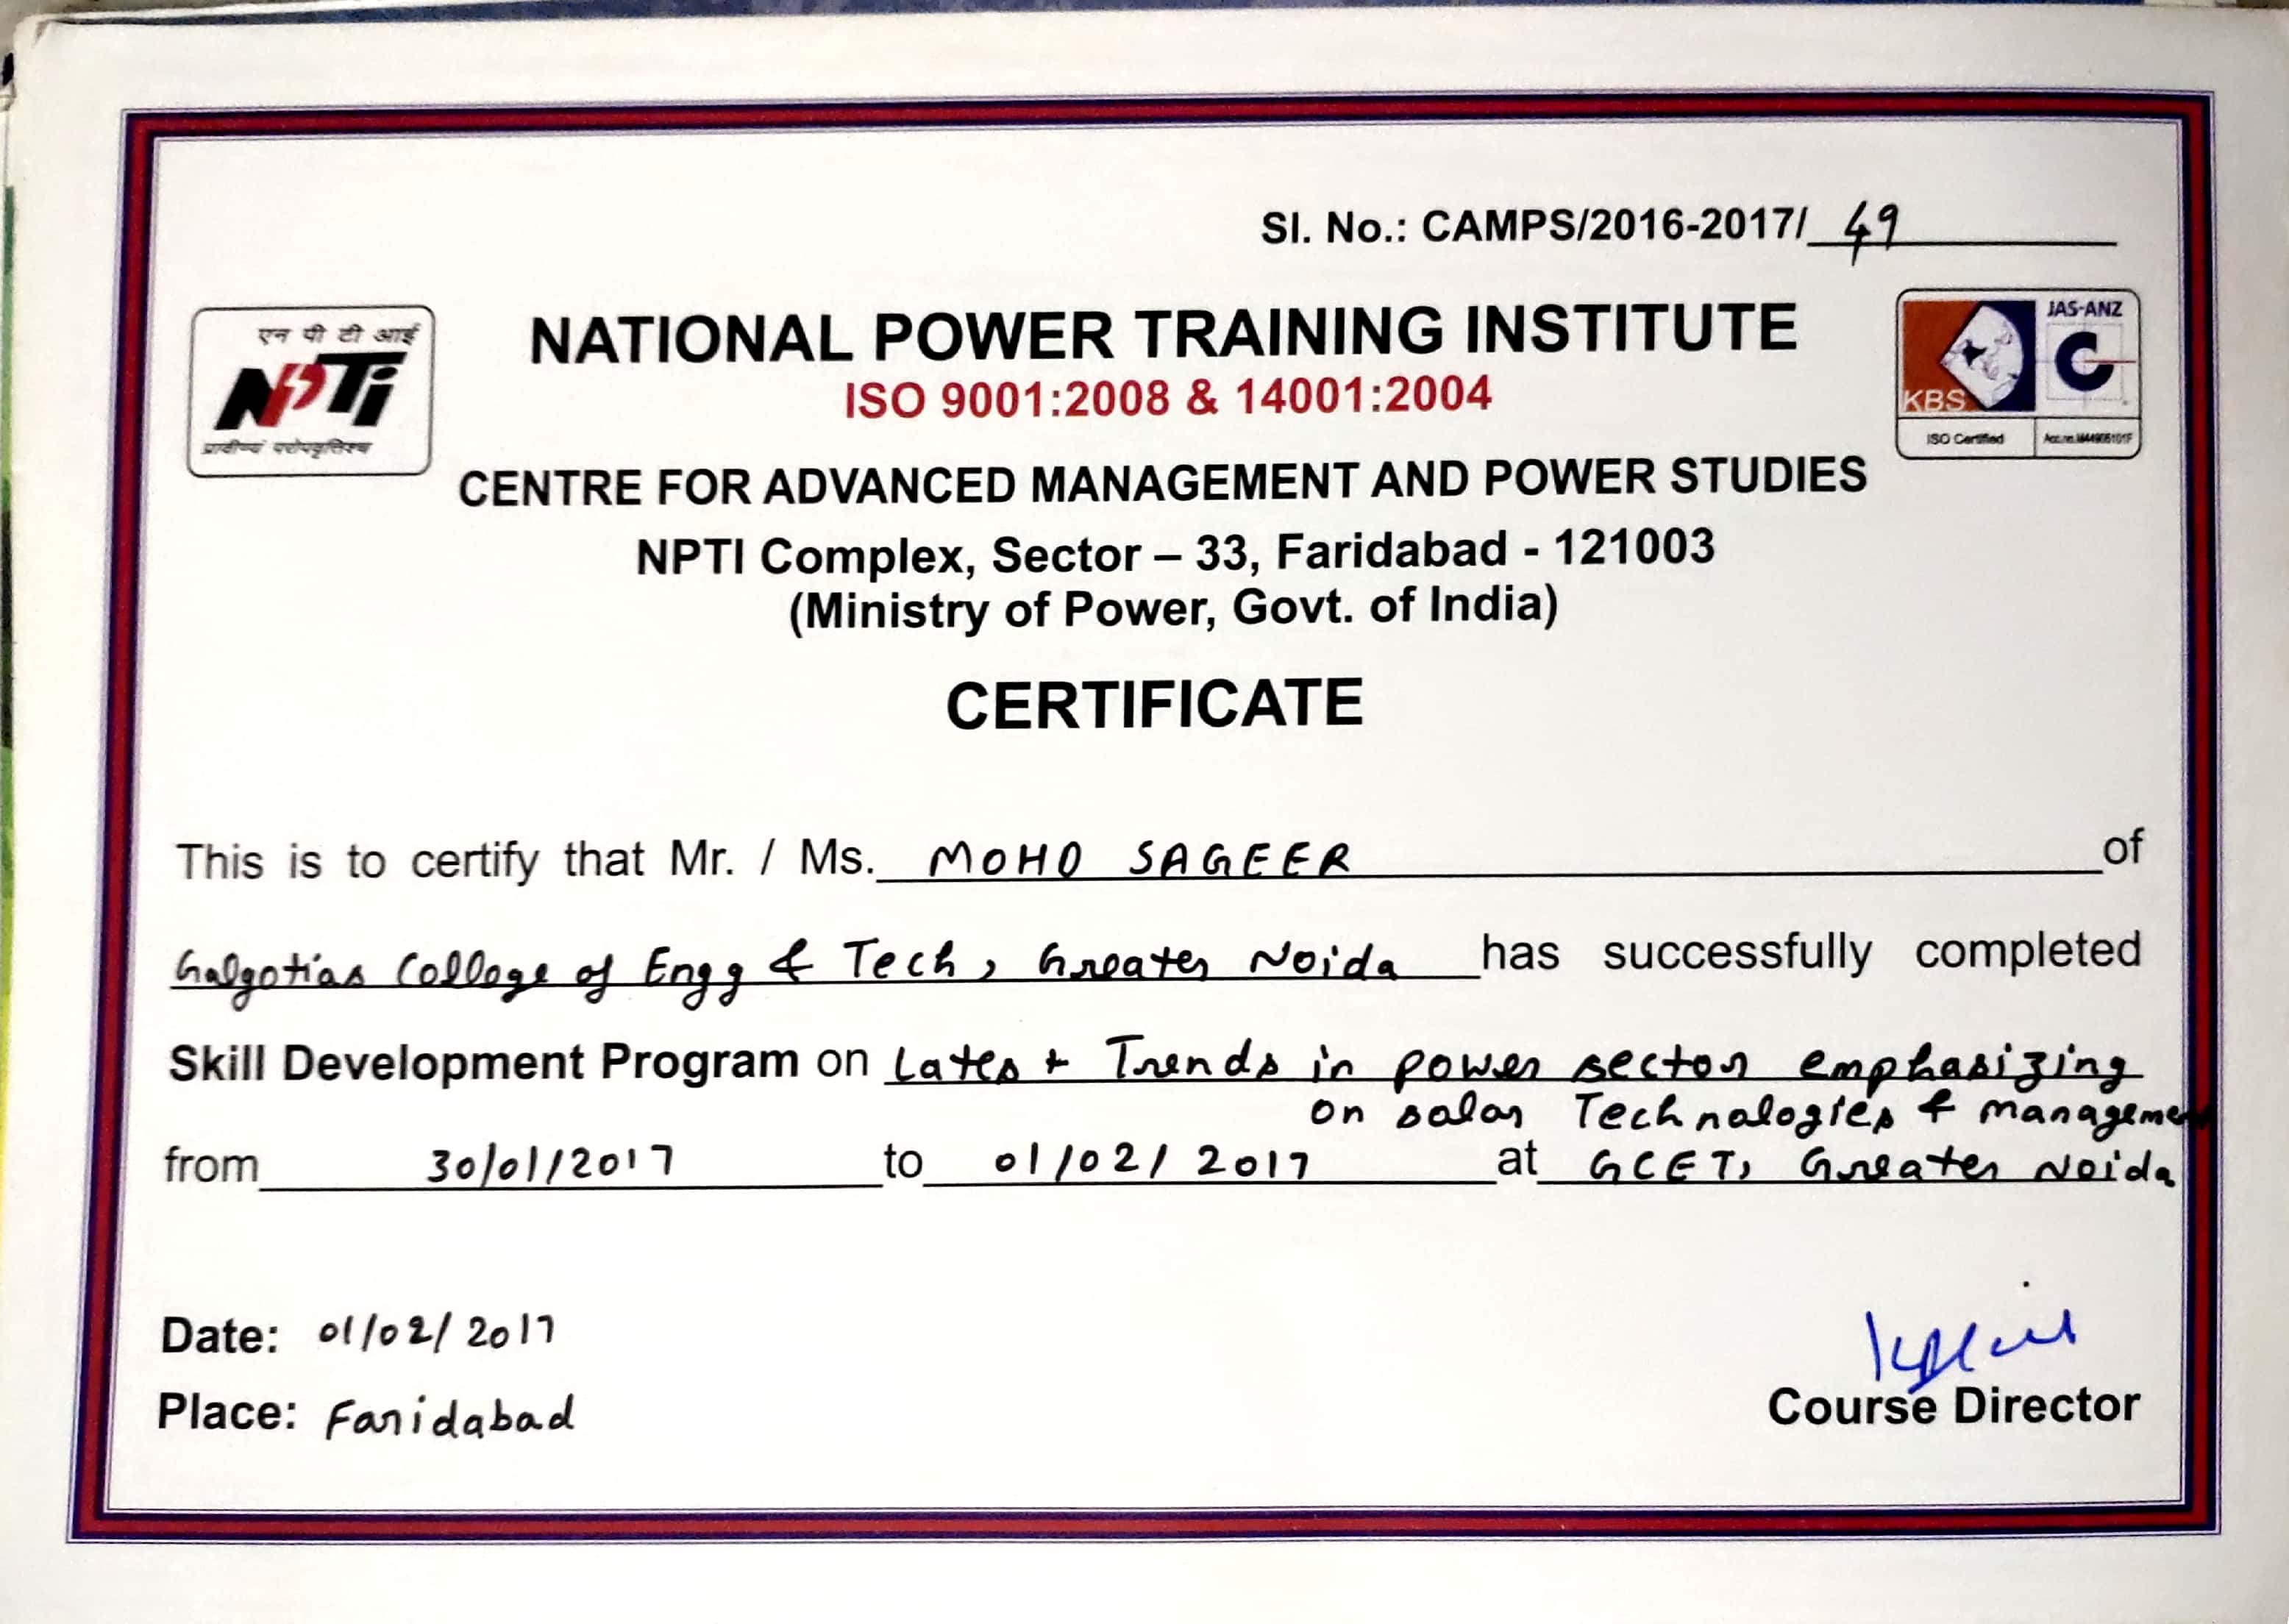 Sl. No.: CAMPS/2016-2017/ 49
एन पी टी आई
NPTI
प्रावीण्यं परोपकृतिश्च
NATIONAL POWER TRAINING INSTITUTE
ISO 9001:2008 & 14001:2004
JAS-ANZ
KBS
ISO Certified
CENTRE FOR ADVANCED MANAGEMENT AND POWER STUDIES
NPTI Complex, Sector – 33, Faridabad - 121003
(Ministry of Power, Govt. of India)
CERTIFICATE
This is to certify that Mr. / Ms. MOHD SAGEER of
Galgotias College of Engg & Tech, Greater Noida has successfully completed
Skill Development Program on Latest Trends in power sector emphasizing
on solar Technologies & management
from 30/01/2017 to 01/02/2017 at GCET, Greater Noida
Date: 01/02/2017
Place: Faridabad
Course Director